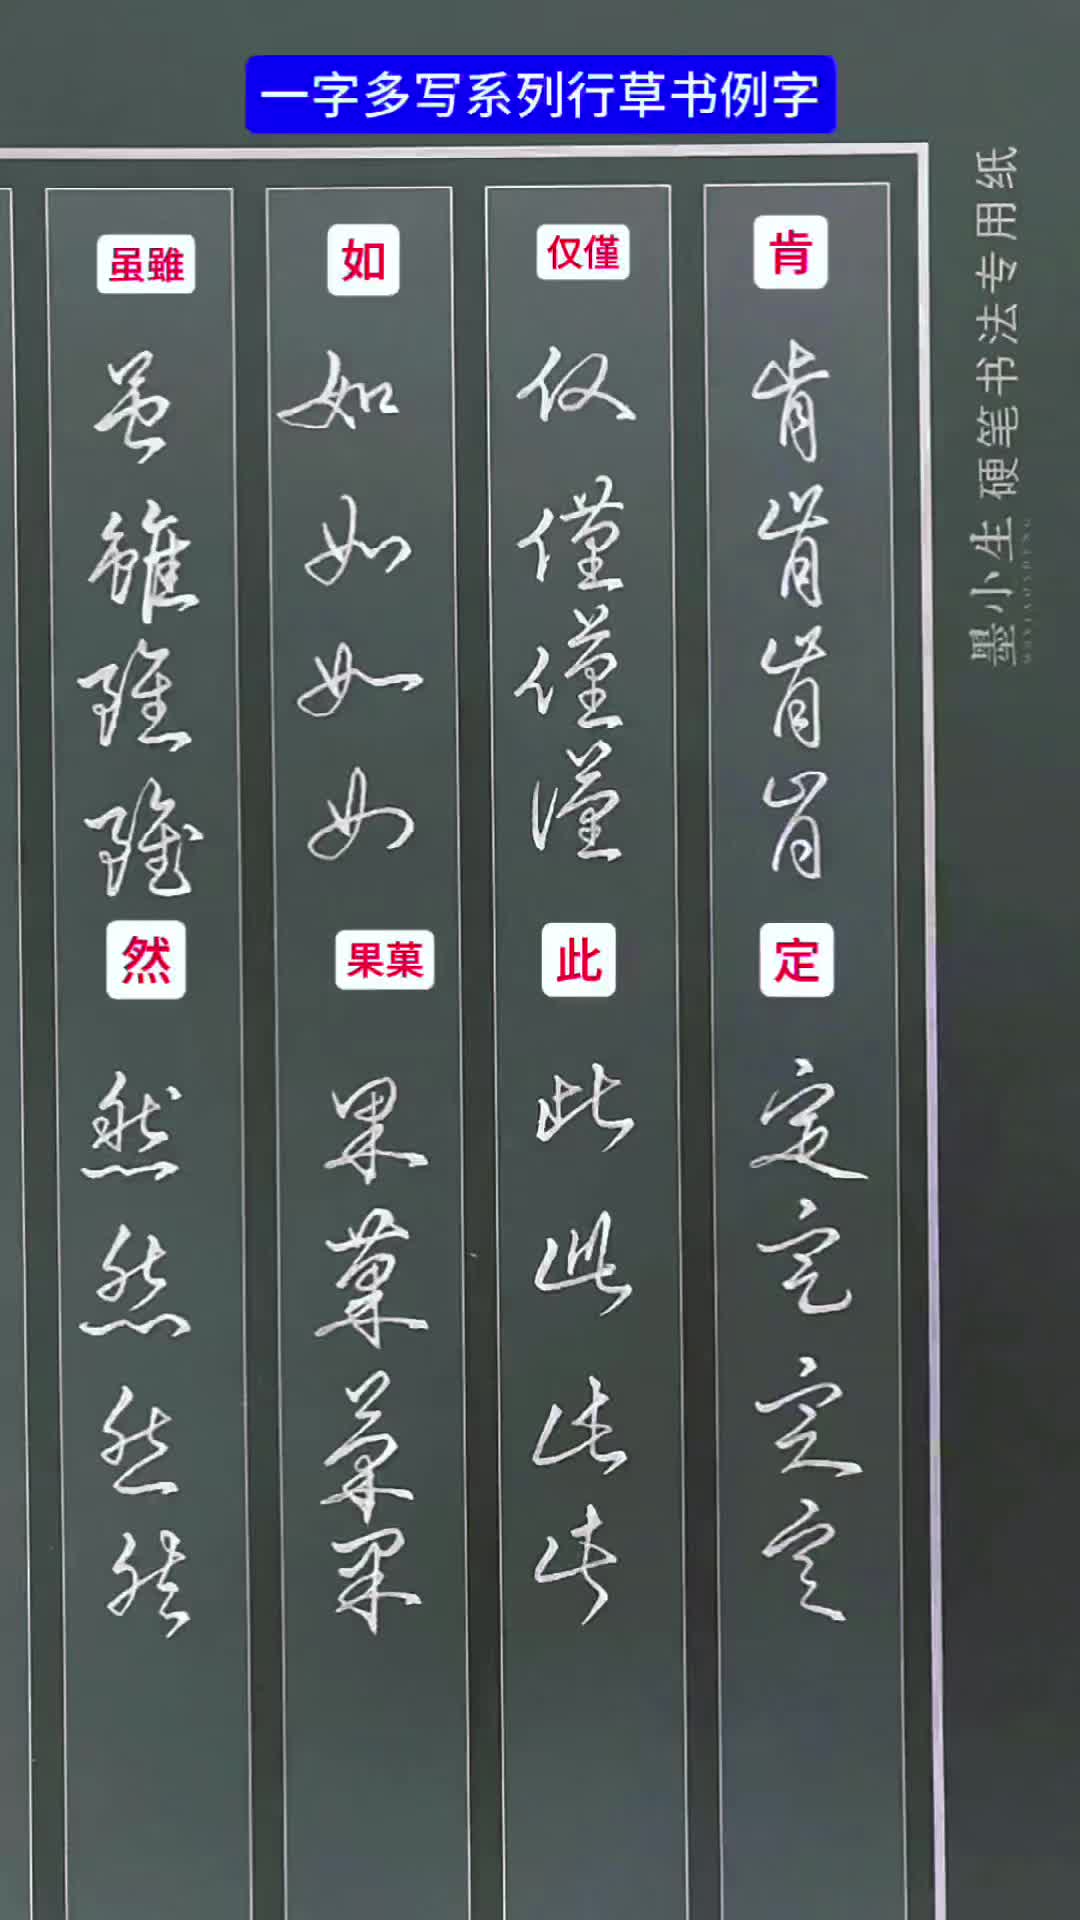 一字多写系列行草书例字
肯
肯
肯
肯
肯
定
定
定
定
定
仅僅
仅
僅
僅
僅
此
此
此
此
此
如
如
如
如
如
果菓
果
菓
菓
果
虽雖
虽
雖
雖
雖
然
然
然
然
然
墨小生 硬笔书法专用纸
MOXIAOSHENG